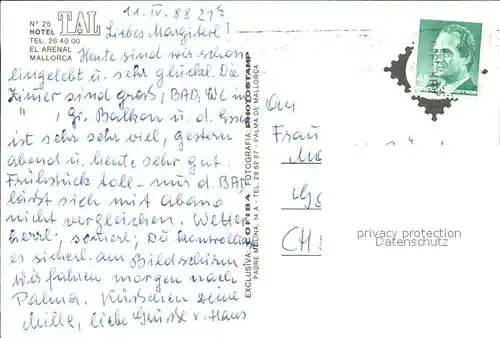 11.IV.88 21h
Nº 25
HOTEL TAL
TEL. 26 40 00
EL ARENAL
MALLORCA
Liebes Margiterl!
Heute sind wir schon
eingelebt u. sehr glückl. Die
Zimer sind groß, BAD, WC in
" , gr. Balkon u. d. Essen
ist sehr sehr viel, gestern
abend u. heute sehr gut.
Frühstück toll - nur d. BAD
läßt sich mit Abano
nicht vergleichen. Wetter
herrl., Du kontrollier
es sicherl. am Bildschirm
wir fahren morgen nach
Palma. Küßchen Deine
Mille, liebe Grüsse v. Hans
EXCLUSIVA: FOTOGRAFIA PHOTOSTAMP
PADRE MOLINA, 14 A - TEL. 29 52 87 - PALMA DE MALLORCA
An
Frau
CH
Correos
privacy protection
Datenschutz